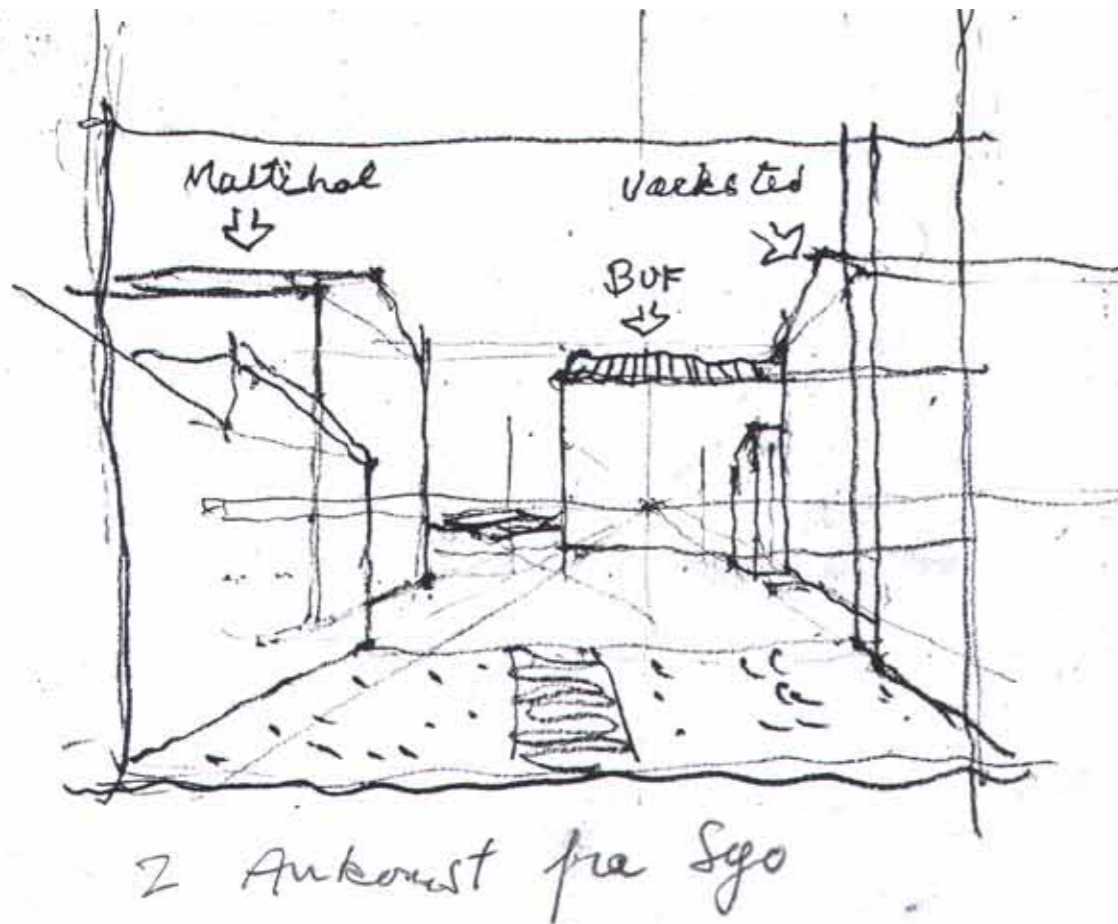 Multihal
Værksted
BUF
2 Ankomst fra Syo